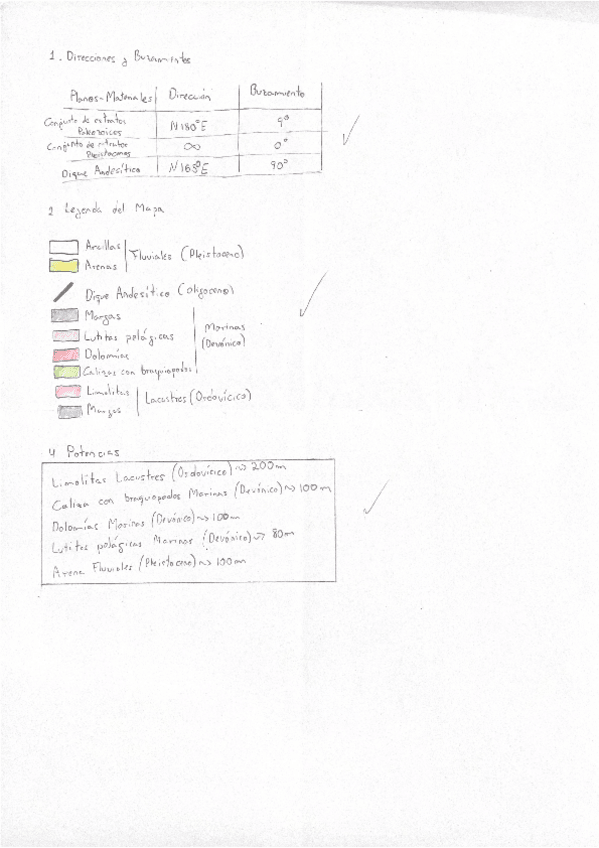 1. Direcciones y Buzamientos
Planos-Materiales Dirección Buzamiento
Conjunto de estratos Paleozoicos N180°E 9°
Conjunto de estratos Pleistocenos ∞ 0°
Dique Andesítico N165°E 90°
2 Leyenda del Mapa
Arcillas
Arenas
Fluviales (Pleistoceno)
Dique Andesítico (Oligoceno)
Margas
Lutitas pelágicas
Dolomías
Calizas con braquiopodos
Marinas
(Devónico)
Limolitas
Margas
Lacustres (Ordovícico)
4 Potencias
Limolitas Lacustres (Ordovícico) ~> 200m
Caliza con braquiopodos Marinas (Devónico) ~> 100m
Dolomías Marinas (Devónico) ~> 100m
Lutitas pelágicas Marinas (Devónico) ~> 80m
Arena Fluviales (Pleistoceno) ~> 100m